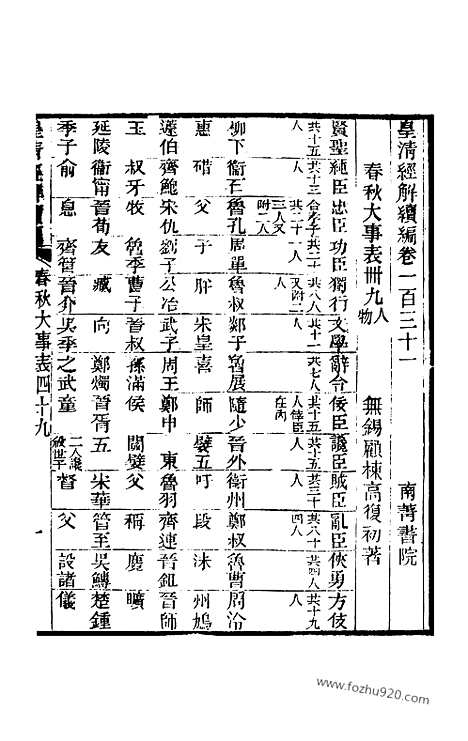 皇清經解續編卷二百三十一 南菁書院
春秋大事表卌九人物 無錫顧棟高復初著
賢聖 純臣 忠臣 功臣 獨行 文學 辭令 佞臣 讒臣 賊臣 亂臣 俠勇 方伎
共十五人 共十三人 共二十一人 共八人 共十二 共七人 共十五人 共十五人 共三十人 共八十四人 共四人 共十九人
柳下 衞石 魯孔 周單 魯叔 鄭子 魯展 隨少 晉外 衞州 鄭叔 魯曹 周泠
惠 碏 父 子 肸 宋皇 喜 師 嬖五 吁 段 沬 州鳩
蘧伯 齊鮑 宋仇 劉子 公冶 武子 周王 鄭申 東 魯羽 齊連 晉鉏 晉師
玉 叔牙 牧 魯季 曹子 晉叔 孫滿 侯 關嬖 父 稱 麑 曠
延陵 衞甯 晉荀 友 臧 向 鄭燭 晉胥 五 宋華 管至 吳鱄 楚鍾
季子 俞 息 齊管 晉介 吳季 之武 童 二人譖殺世子 督 父 設諸 儀
春秋大事表四十九 一
www.fozhu920.com